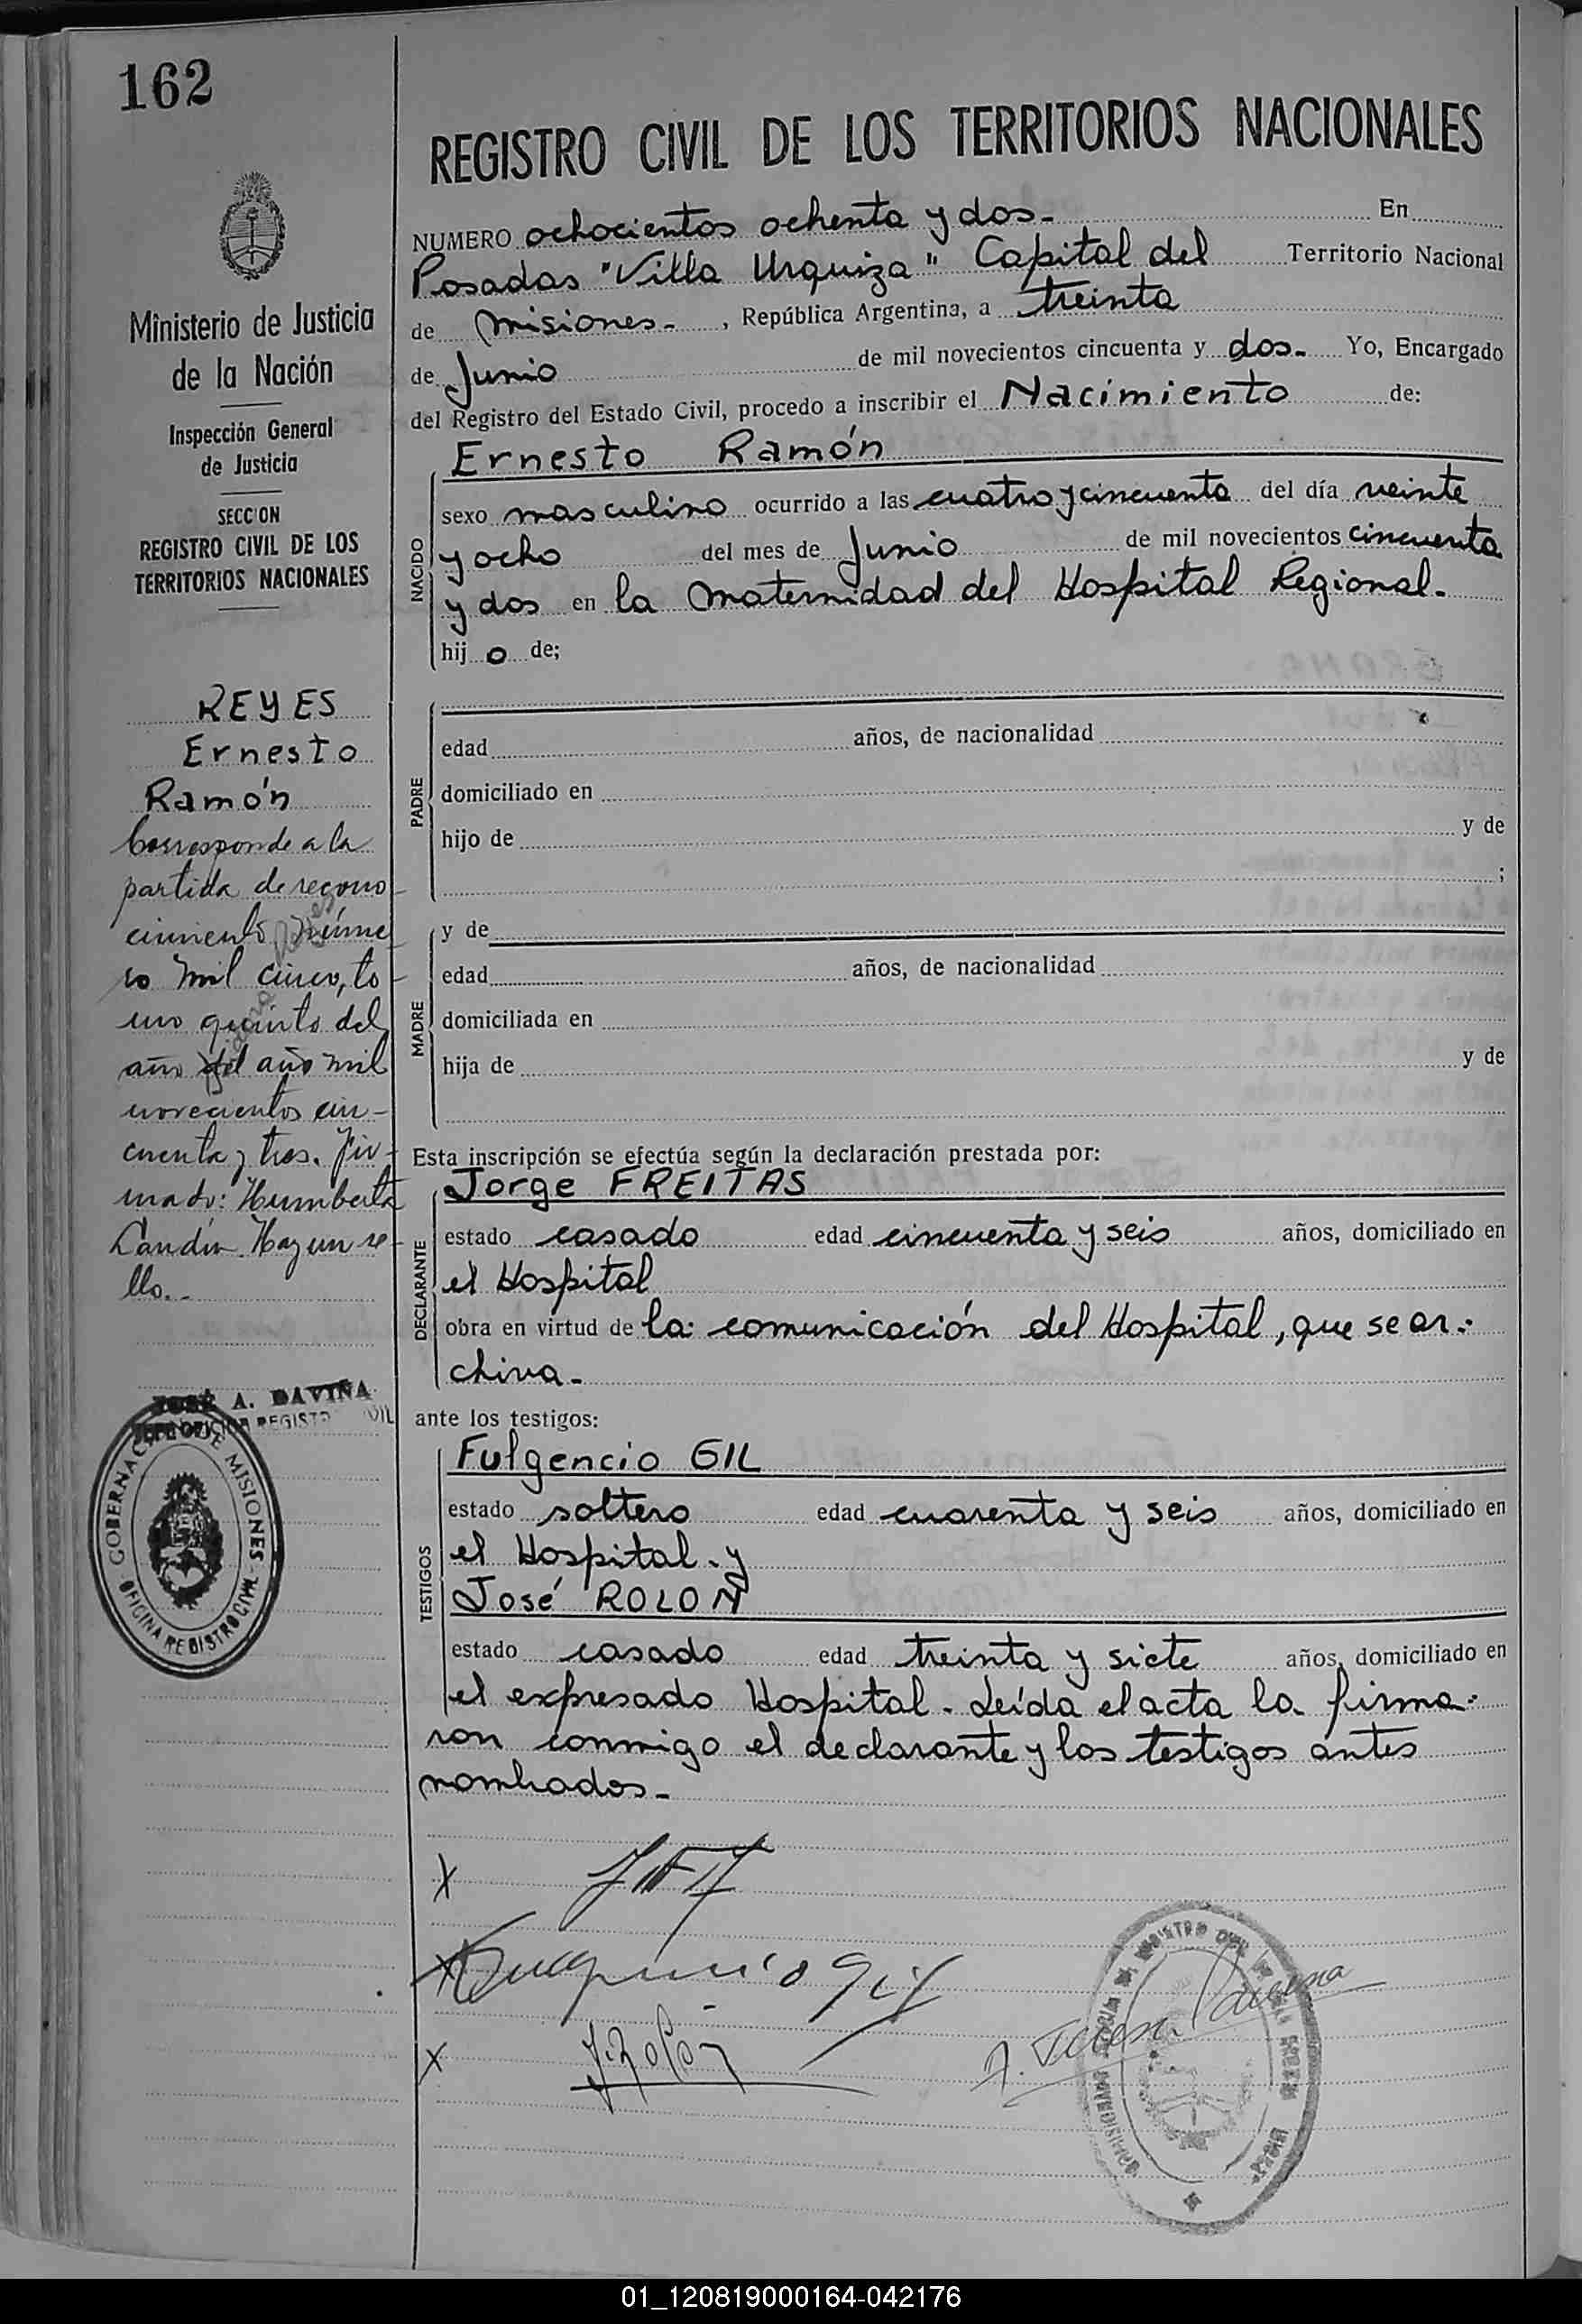 162
REGISTRO CIVIL DE LOS TERRITORIOS NACIONALES
Ministerio de Justicia
de la Nación
Inspección General
de Justicia
SECCION
REGISTRO CIVIL DE LOS
TERRITORIOS NACIONALES
REYES
Ernesto
Ramón
Corresponde a la
partida de recono-
cimiento núme-
ro mil cinco, to-
mo quinto del
año del año mil
novecientos cin-
cuenta y tres. Fir-
mado: Humberto
Landin. Hay un se-
llo.-
JOSÉ A. DAVIÑA
GOBERNACION DE MISIONES
OFICINA REGISTRO CIVIL
NUMERO ochocientos ochenta y dos- En
Posadas "Villa Urquiza" Capital del Territorio Nacional
de Misiones-, República Argentina, a treinta
de Junio de mil novecientos cincuenta y dos- Yo, Encargado
del Registro del Estado Civil, procedo a inscribir el Nacimiento de:
NACIDO
Ernesto Ramón
sexo masculino ocurrido a las cuatro y cincuenta del día veinte
y ocho del mes de Junio de mil novecientos cincuenta
y dos en la Maternidad del Hospital Regional-
hij o de;
PADRE
edad años, de nacionalidad
domiciliado en
hijo de y de
;
MADRE
y de
edad años, de nacionalidad
domiciliada en
hija de y de
Esta inscripción se efectúa según la declaración prestada por:
DECLARANTE
Jorge FREITAS
estado casado edad cincuenta y seis años, domiciliado en
el Hospital
obra en virtud de la: comunicación del Hospital, que se ar:
chiva-
ante los testigos:
TESTIGOS
Fulgencio GIL
estado soltero edad cuarenta y seis años, domiciliado en
el Hospital. y
José ROLON
estado casado edad treinta y siete años, domiciliado en
el expresado Hospital- Leída el acta la firma:
ron conmigo el declarante y los testigos antes
nombrados-
X
X
X J. Rolón
01_120819000164-042176